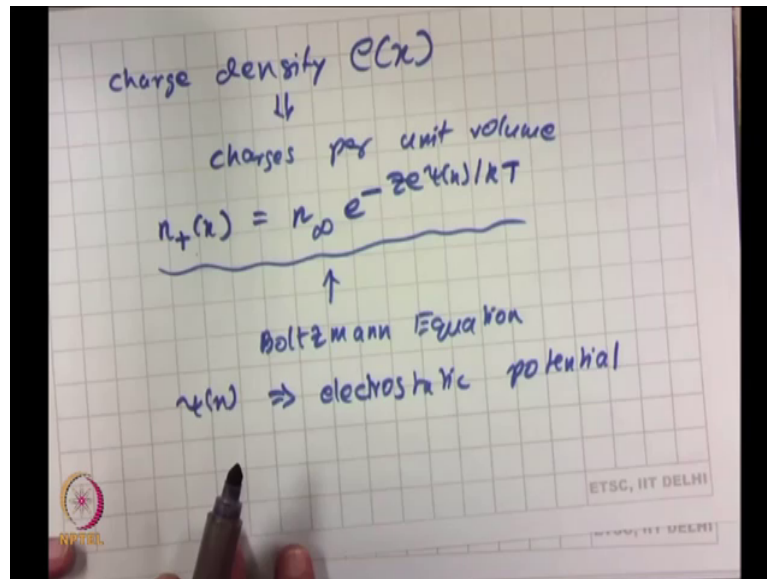 charge density ρ(x)
⇓
charges per unit volume
n₊(x) = n∞ e^{-zeψ(x)/kT}
↑
Boltzmann Equation
ψ(x) ⇒ electrostatic potential
ETSC, IIT DELHI
ETSC, IIT DELHI
NPTEL